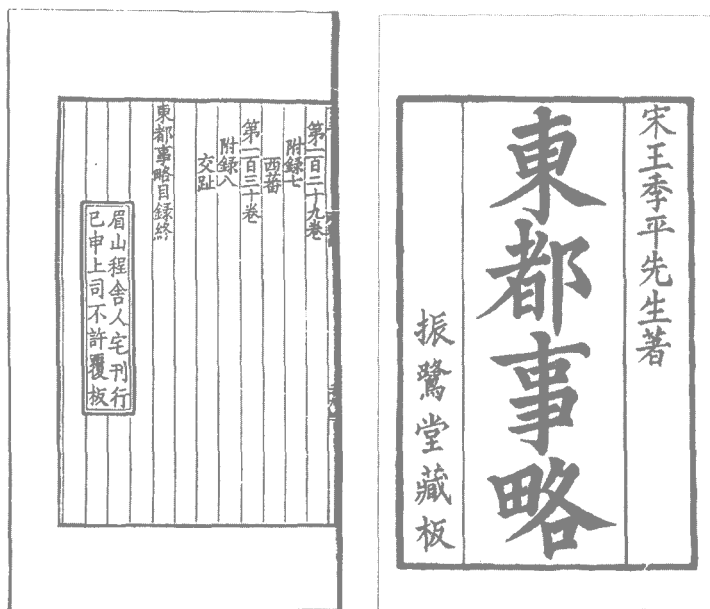 宋王季平先生著
東都事略
振鷺堂藏板
第一百二十九卷
附録七
西蕃
第一百三十卷
附録八
交趾
東都事略目録終
眉山程舎人宅刊行
已申上司不許覆板